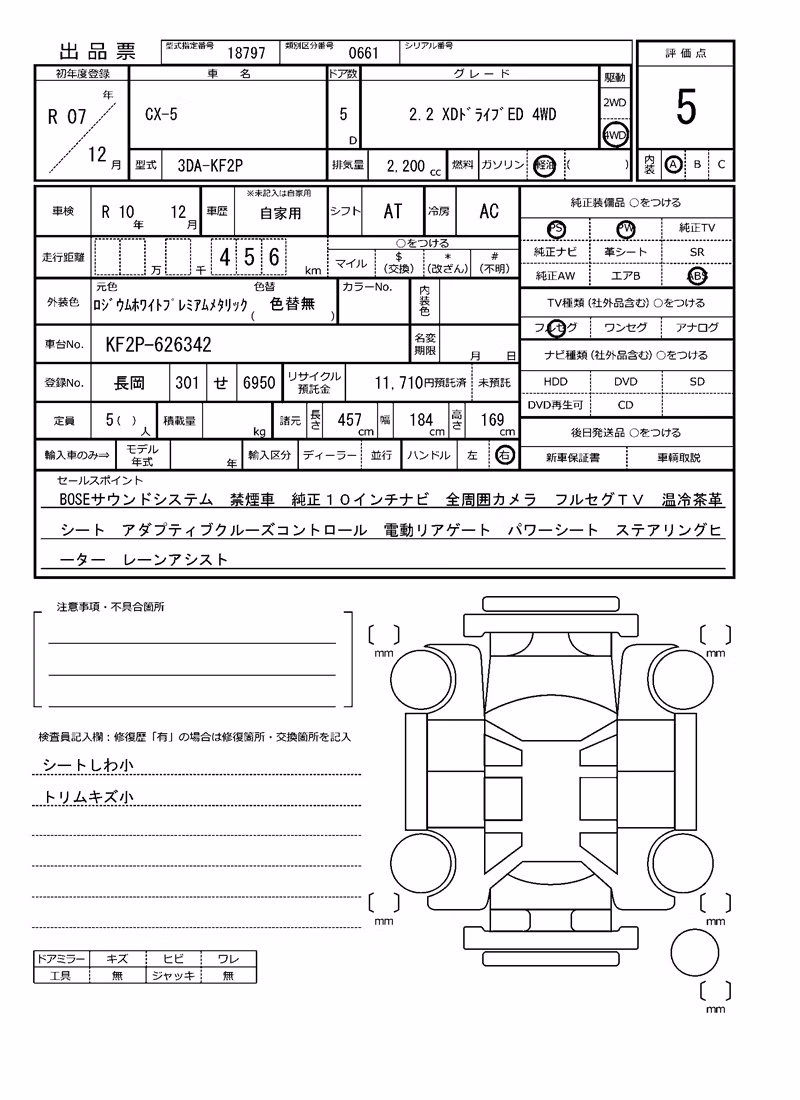 出品票 型式指定番号 18797 類別区分番号 0661 シリアル番号
評価点
初年度登録 車名 ドア数 グレード 駆動
R 07 年 12 月 CX-5 5 D 2.2 XDﾄﾞﾗｲﾌﾞED 4WD 2WD 4WD
5
型式 3DA-KF2P 排気量 2,200 cc 燃料 ガソリン 軽油 ( )
内装 A B C
車検 R 10 年 12 月 車歴 ※未記入は自家用 自家用 シフト AT 冷房 AC
純正装備品 ○をつける
PS PW 純正TV
純正ナビ 革シート SR
純正AW エアB ABS
走行距離 万 千 4 5 6 km
○をつける
マイル $ (交換) * (改ざん) # (不明)
外装色 元色 ﾛｼﾞｳﾑﾎﾜｲﾄﾌﾟﾚﾐｱﾑﾒﾀﾘｯｸ 色替 ( 色替無 ) カラーNo. 内装色
TV種類(社外品含む) ○をつける
フルセグ ワンセグ アナログ
車台No. KF2P-626342 名変期限 月 日
ナビ種類(社外品含む) ○をつける
HDD DVD SD
DVD再生可 CD
登録No. 長岡 301 せ 6950 リサイクル預託金 11,710円預託済 未預託
定員 5( ) 人 積載量 kg 諸元 長さ 457 cm 幅 184 cm 高さ 169 cm
後日発送品 ○をつける
新車保証書 車輌取説
輸入車のみ⇒ モデル年式 年 輸入区分 ディーラー 並行 ハンドル 左 右
セールスポイント
BOSEサウンドシステム 禁煙車 純正１０インチナビ 全周囲カメラ フルセグＴＶ 温冷茶革
シート アダプティブクルーズコントロール 電動リアゲート パワーシート ステアリングヒ
ーター レーンアシスト
注意事項・不具合箇所
mm mm
検査員記入欄：修復歴「有」の場合は修復箇所・交換箇所を記入
シートしわ小
トリムキズ小
mm mm
ドアミラー キズ ヒビ ワレ
工具 無 ジャッキ 無
mm